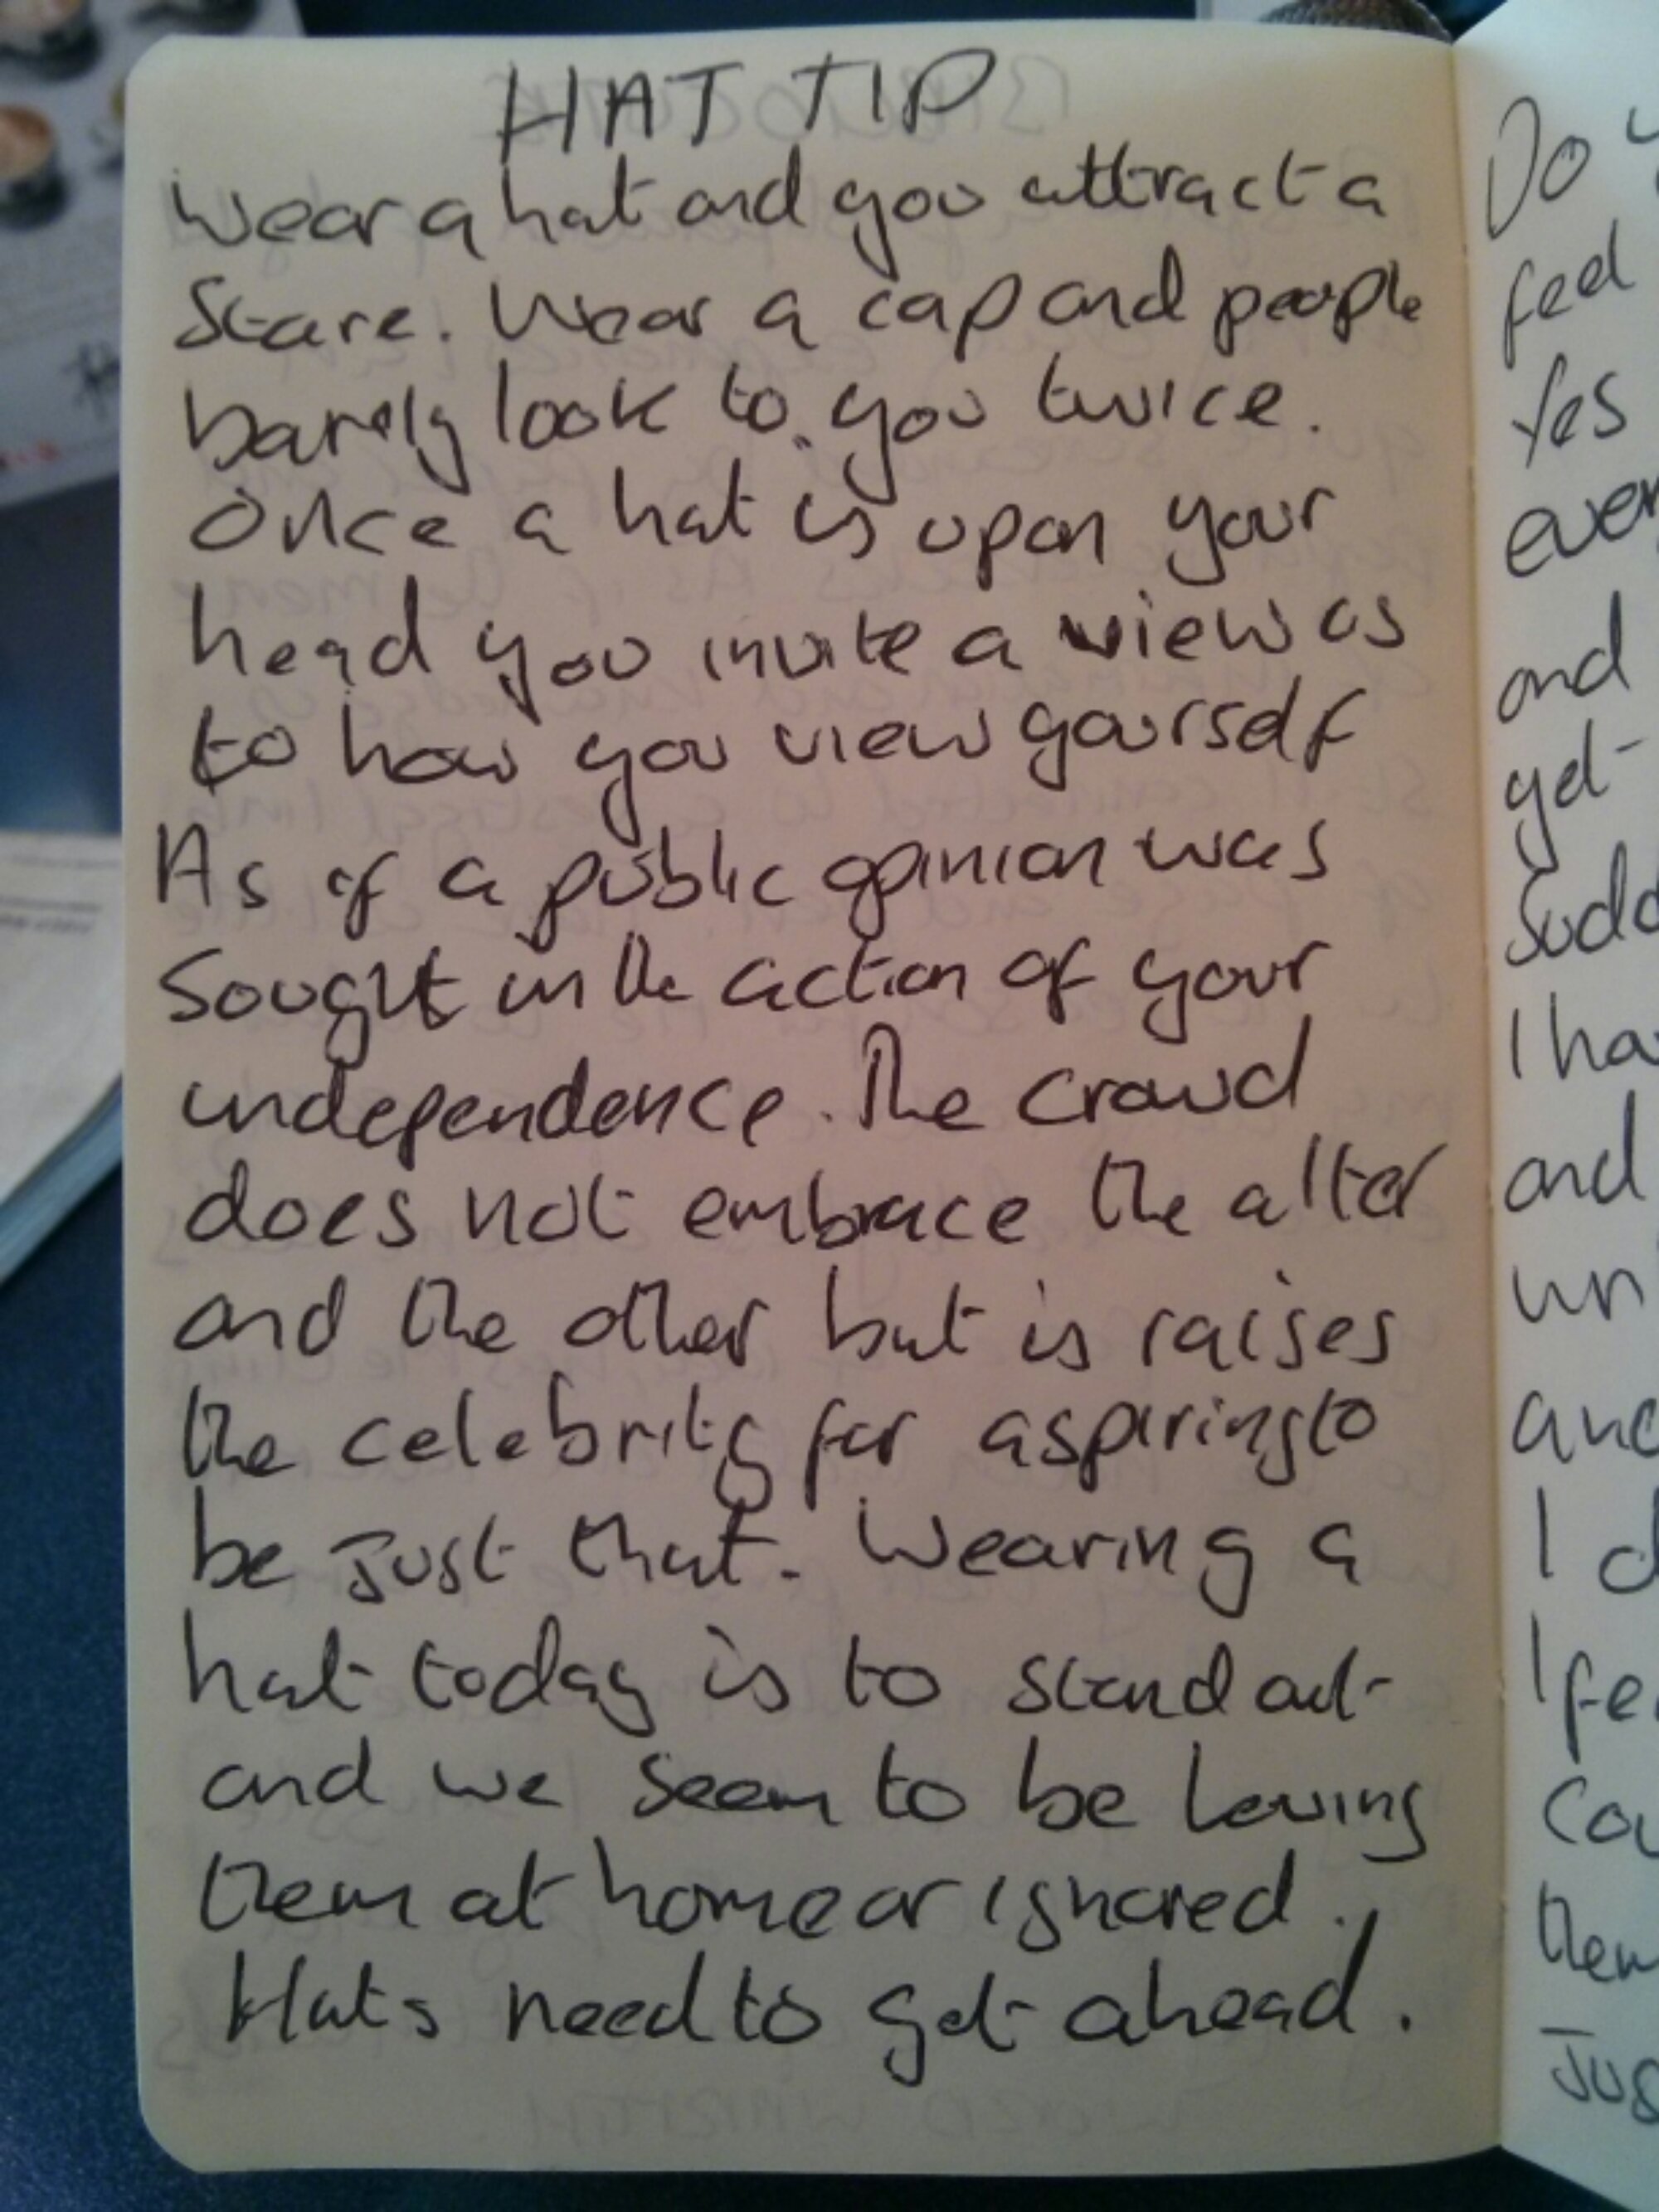 HAT TIP
Wear a hat and you attract a
Stare. Wear a cap and people
barely look to you twice.
Once a hat is upon your
head you invite a view as
to how you view yourself
As if a public opinion was
Sought in the action of your
independence. The crowd
does not embrace the alter
and the other but is raises
the celebrity for aspiring to
be just that. Wearing a
hat today is to stand out
and we seem to be leaving
them at home or ignored.
Hats need to get ahead.
Do
feel
Yes
ever
and
get
Sudd
I ha
and
un
and
I d
I fe
Cou
them
Jus